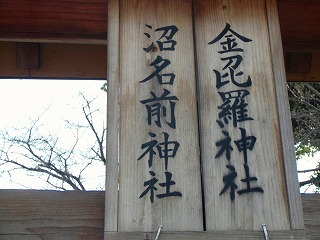 金毘羅神社
沼名前神社